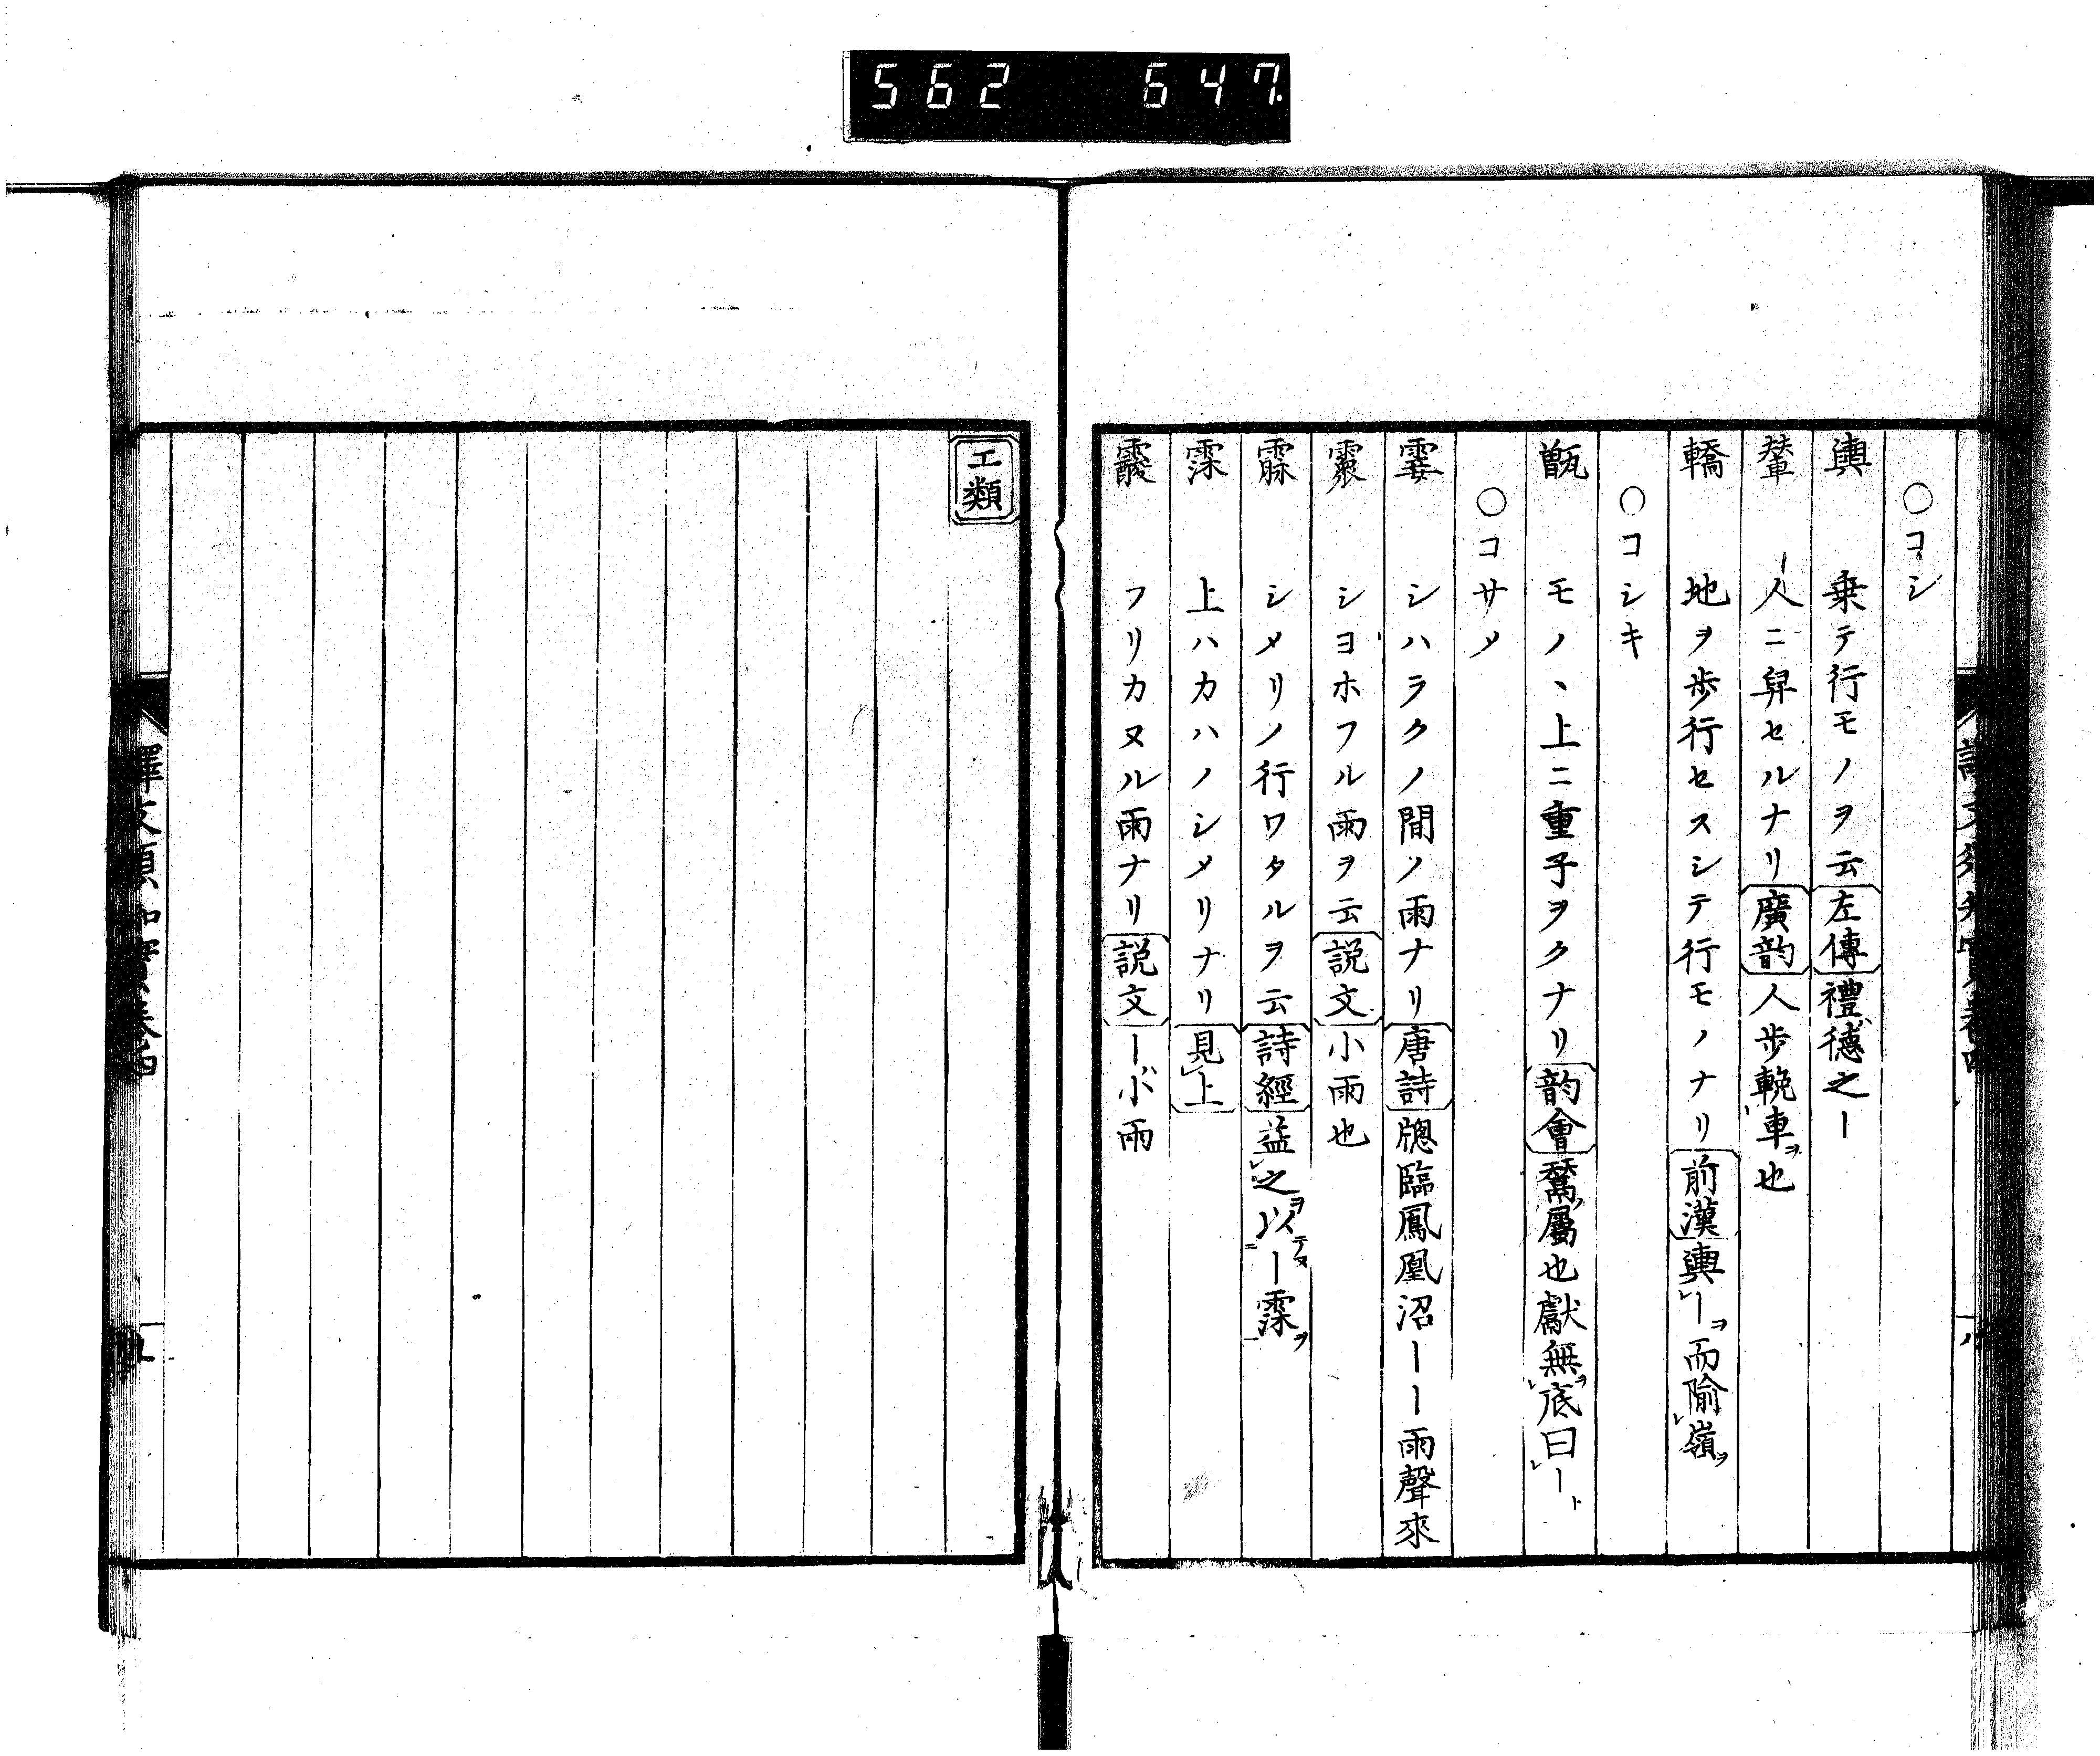 562 647.
○コシ
輿 乗テ行モノヲ云左傳禮德之ー
輦 ー人ニ舁セルナリ廣韵人歩輓車ヲ也
轎 地ヲ歩行セスシテ行モノナリ前漢輿ーヲ而隃嶺ヲ
○コシキ
甑 モノヽ上ニ重子ヲクナリ韵會鬵屬也獻無底曰ー
○コサメ
霎 シハラクノ間ノ雨ナリ唐詩牕臨鳳凰沼ーー雨聲來
霥 シヨホフル雨ヲ云説文小雨也
霢 シメリノ行ワタルヲ云詩經益之以ー霂
霂 上ハカハノシメリナリ見上
霰 フリカヌル雨ナリ説文ー小雨
エ類
譯文須知實卷四